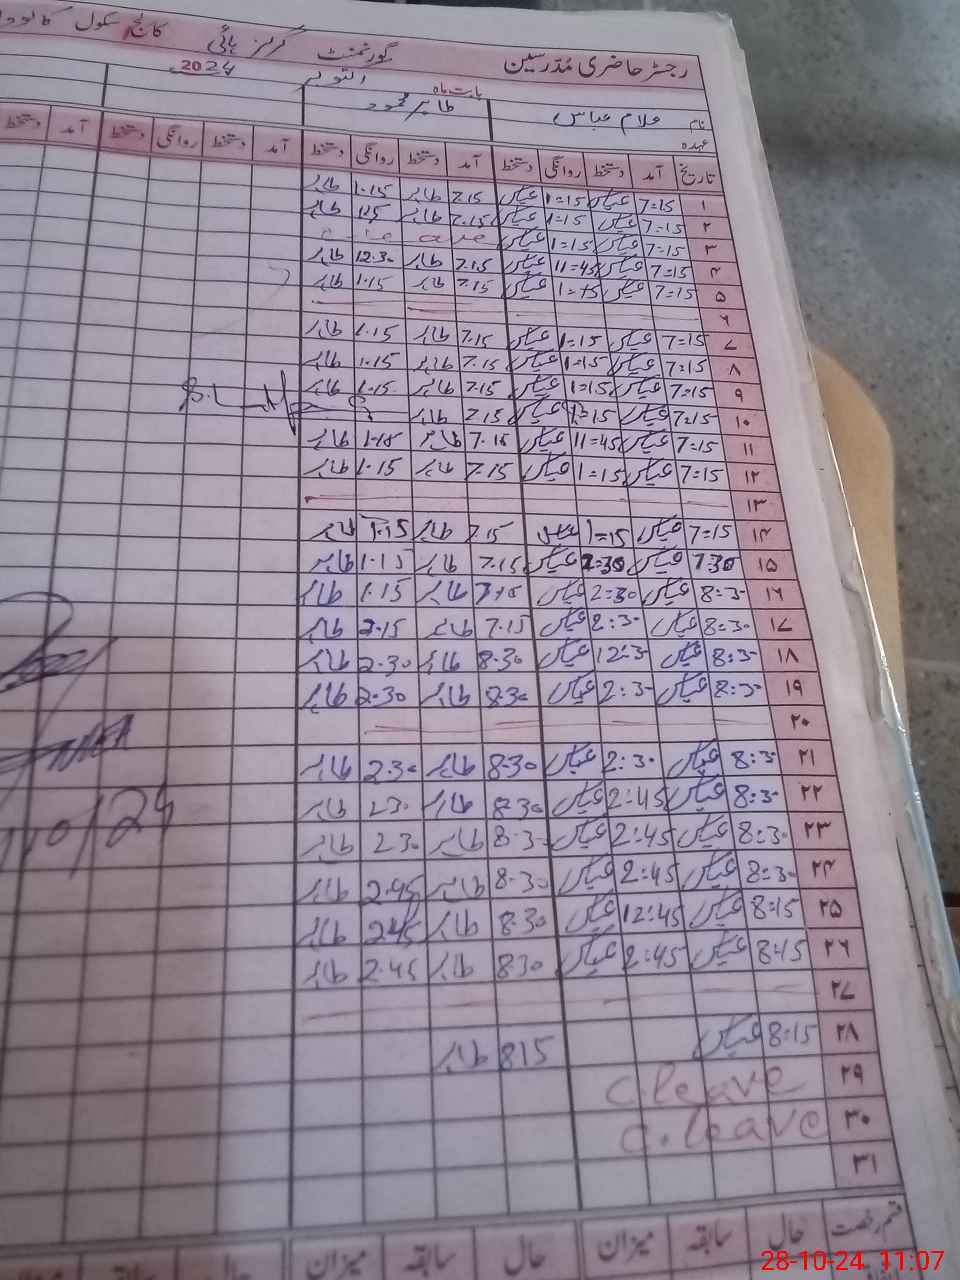 رجسٹر حاضری مُدرسین گورنمنٹ گرلز ہائی سکول
بابت ماہ اکتوبر 2024
نام غلام عباس طاہر محمود
عہدہ
تاریخ آمد دستخط روانگی دستخط آمد دستخط روانگی دستخط آمد دستخط روانگی دستخط آمد دستخط
۱ 7=15 عباس 1=15 عباس 7.15 طاہر 1.15 طاہر
۲ 7=15 عباس 1=15 عباس 7.15 طاہر 1.15 طاہر
۳ 7=15 عباس 1=15 عباس c leave
۴ 7=15 عباس 11=45 عباس 7.15 طاہر 12.30 طاہر
۵ 7=15 عباس 1=15 عباس 7.15 طاہر 1.15 طاہر
۶
۷ 7=15 عباس 1=15 عباس 7.15 طاہر 1.15 طاہر
۸ 7=15 عباس 1=15 عباس 7.15 طاہر 1.15 طاہر
۹ 7=15 عباس 1=15 عباس 7.15 طاہر 1.15 طاہر
۱۰ 7=15 عباس 1=15 عباس 7.15 طاہر
۱۱ 7=15 عباس 11=45 عباس 7.15 طاہر 1.15 طاہر
۱۲ 7=15 عباس 1=15 عباس 7.15 طاہر 1.15 طاہر
۱۳
۱۴ 7=15 عباس 1=15 عباس 7.15 طاہر 1.15 طاہر
۱۵ 7:30 عباس 2:30 عباس 7.15 طاہر 1.15 طاہر
۱۶ 8:30 عباس 2:30 عباس 7.15 طاہر 1.15 طاہر
۱۷ 8:30 عباس 2:30 عباس 7.15 طاہر 2.15 طاہر
۱۸ 8:30 عباس 12:30 عباس 8.30 طاہر 2.30 طاہر
۱۹ 8:30 عباس 2:30 عباس 8.30 طاہر 2.30 طاہر
۲۰
۲۱ 8:30 عباس 2:30 عباس 8.30 طاہر 2.30 طاہر
۲۲ 8:30 عباس 2:45 عباس 8.30 طاہر 2.30 طاہر
۲۳ 8:30 عباس 2:45 عباس 8.30 طاہر 2.30 طاہر
۲۴ 8:30 عباس 2:45 عباس 8.30 طاہر 2.45 طاہر
۲۵ 8:15 عباس 12:45 عباس 8.30 طاہر 2.45 طاہر
۲۶ 8:15 عباس 2:45 عباس 8.30 طاہر 2.45 طاہر
۲۷
۲۸ 8:15 عباس 8 15 طاہر
۲۹ c.leave
۳۰ c.leave
۳۱
قسم رخصت حال سابقہ میزان حال سابقہ میزان حال سابقہ میزان
28-10-24 11:07